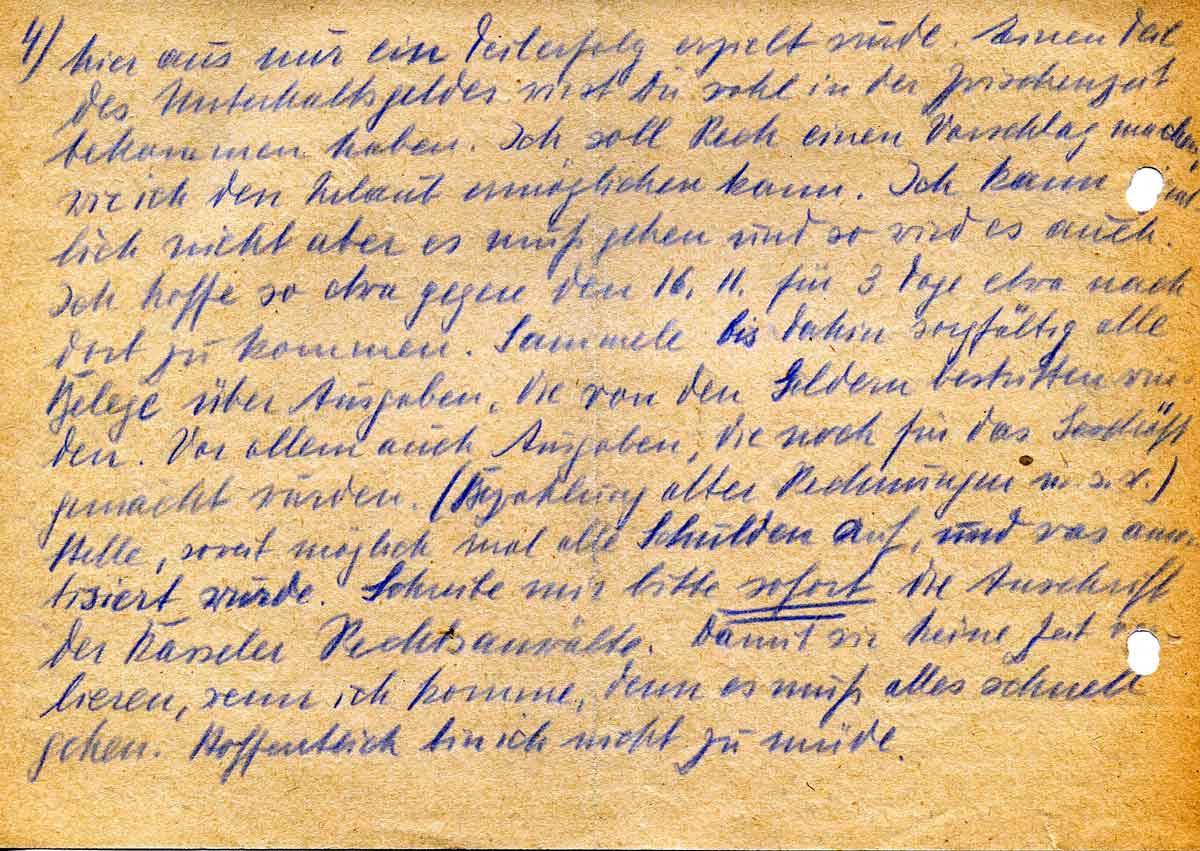 4) hier aus nur ein Teilerfolg erzielt wurde. Einen Teil
des Unterhaltsgeldes wirst Du wohl in der Zwischenzeit
bekommen haben. Ich soll Rech einen Vorschlag machen
wie ich den Urlaub ermöglichen kann. Ich kann
lich nicht aber es muß gehen und so wird es auch.
Ich hoffe so etwa gegen den 16. 11. für 3 Tage etwa nach
dort zu kommen. Sammele bis dahin sorgfältig alle
Belege über Ausgaben, die von den Geldern bestritten wur-
den. Vor allem auch Ausgaben, die noch für das Geschäft
gemacht wurden. (Bezahlung alter Rechnungen u. s. w.)
Stelle, soweit möglich mal alle Schulden auf, und was amor-
tisiert wurde. Schreibe mir bitte sofort die Anschrift
der Kasseler Rechtsanwälte. Damit wir keine Zeit ver-
lieren, wenn ich komme, denn es muß alles schnell
gehen. Hoffentlich bin ich nicht zu müde.